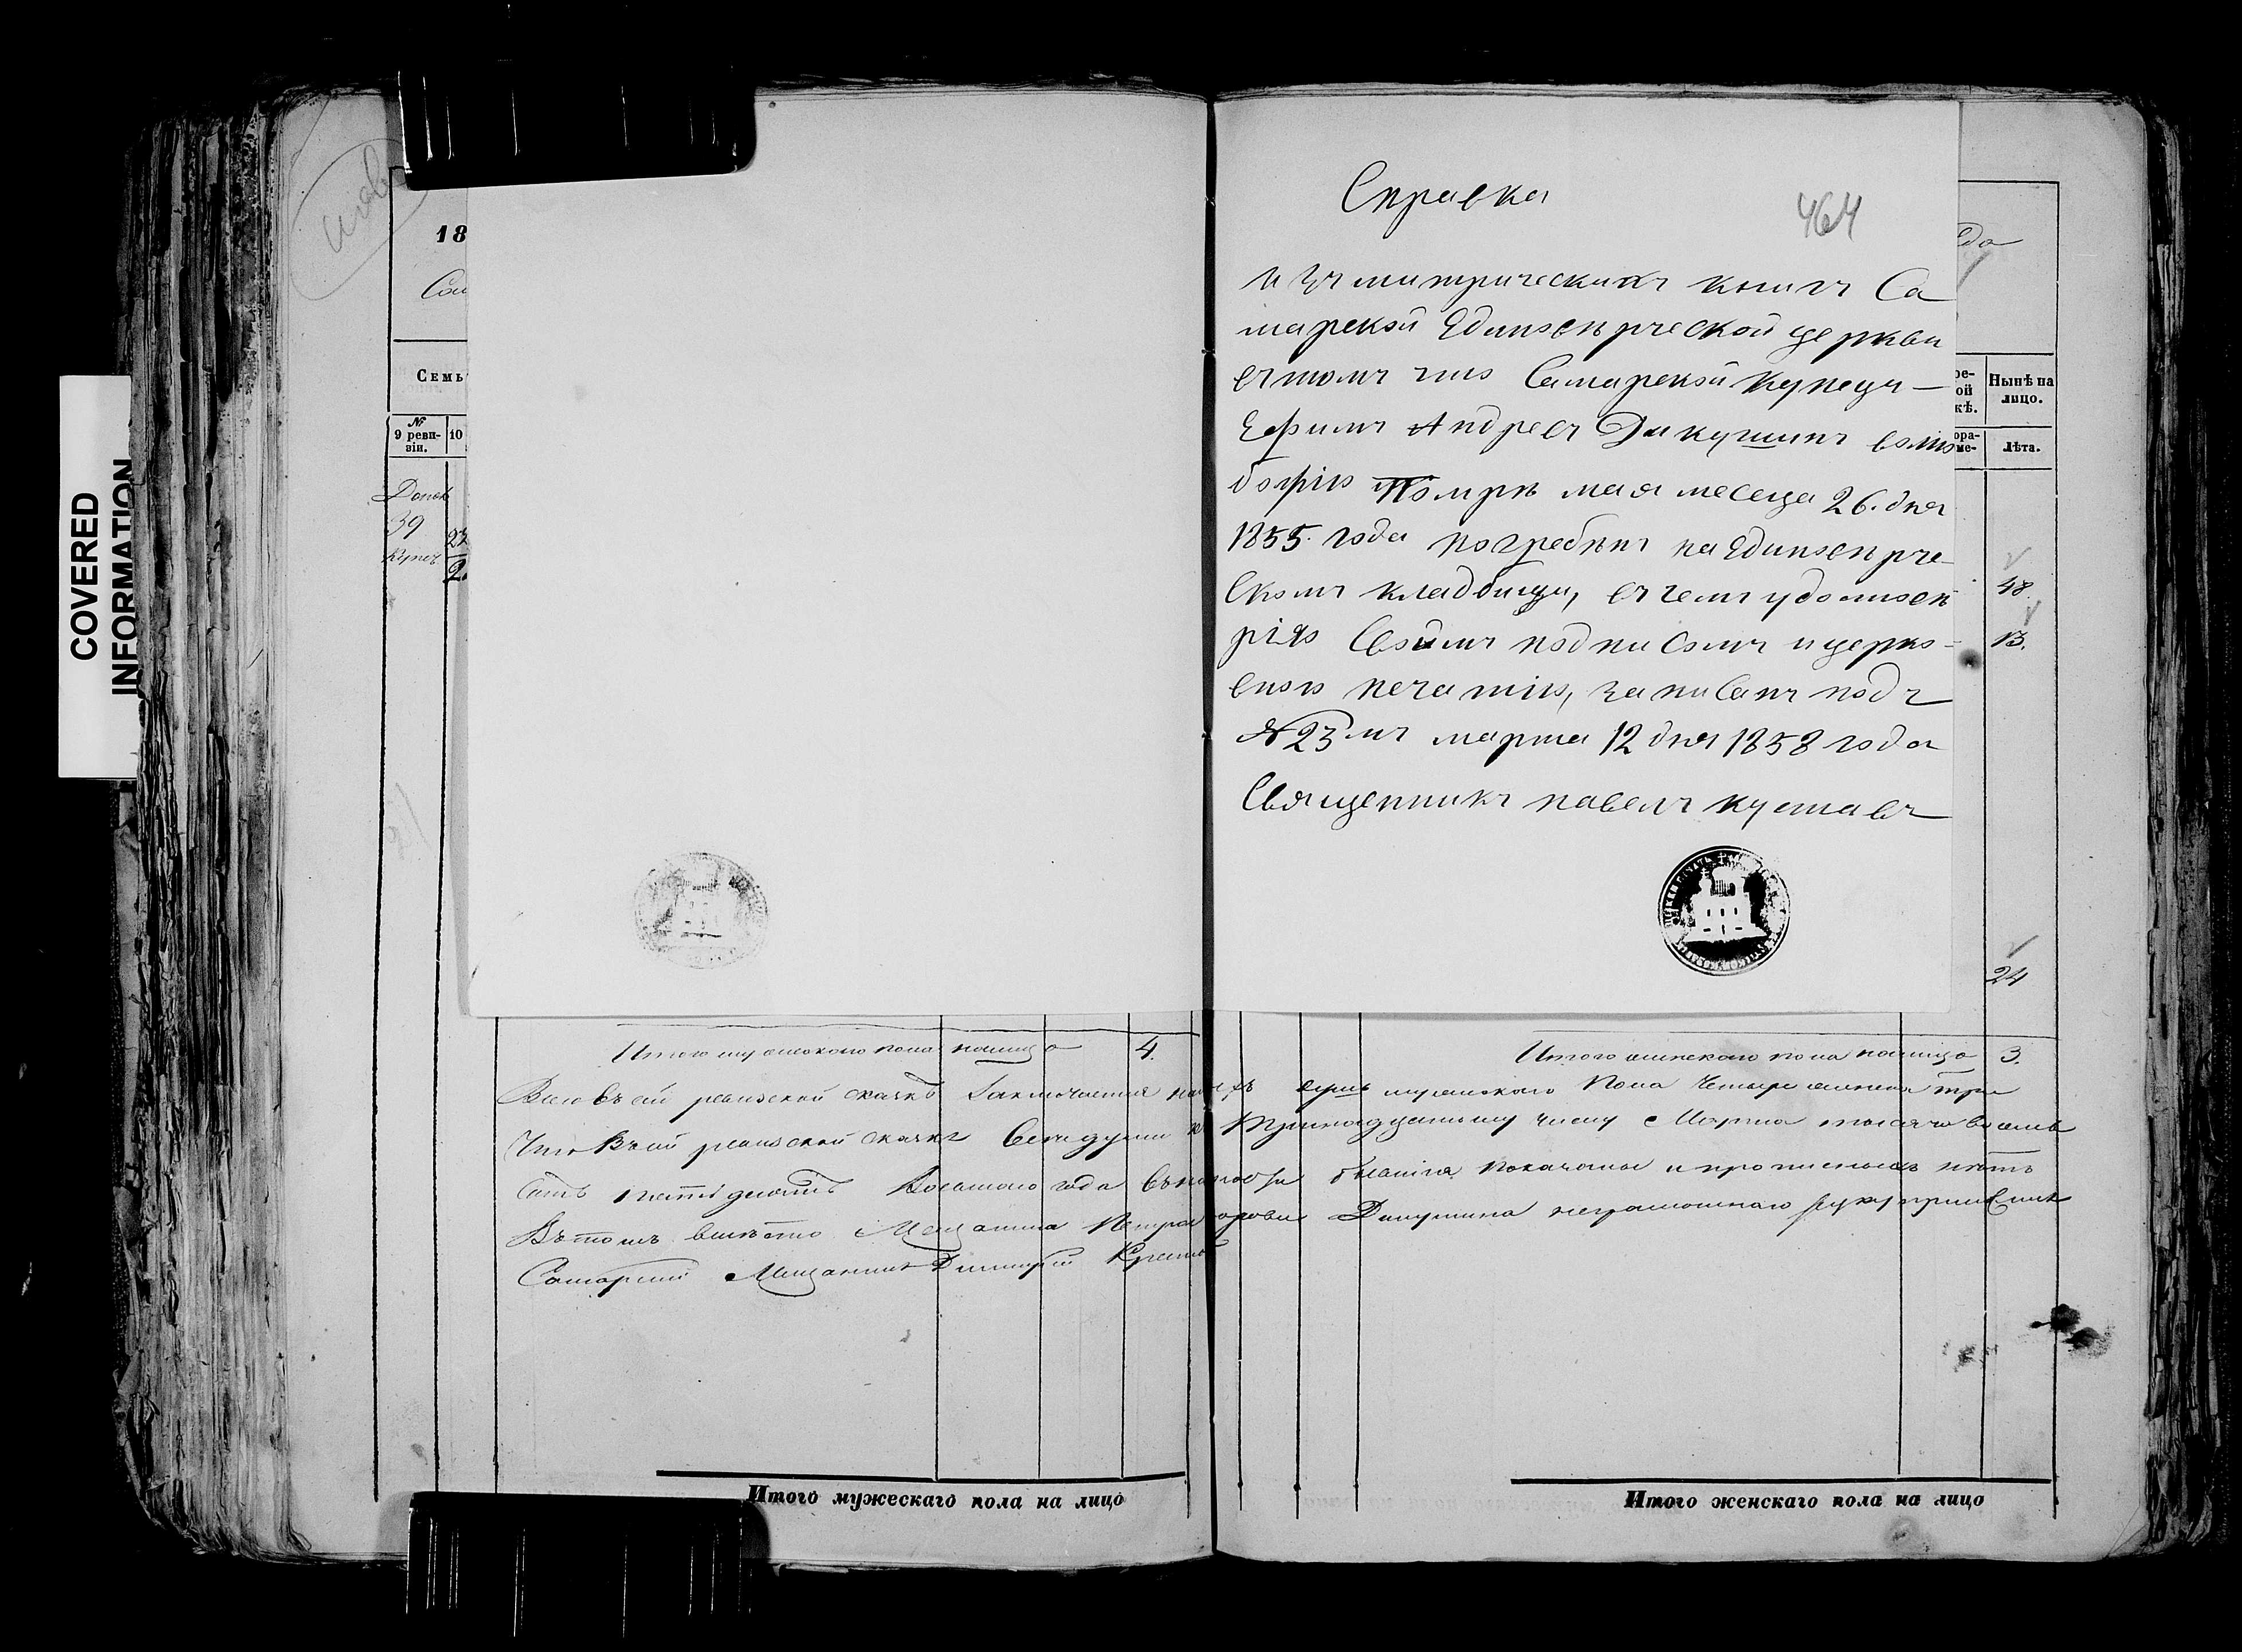 COVERED
INFORMATION
18
Семь
№
9 реви-
зіи.
10
39
Справка
464
изъ митрическихъ книгъ Са
марской Единоверческой церкви
въ томъ что Самарской купецъ
Ефимъ Андреевъ Дикушинъ
Помре мая месеца 26. дня
1855. года погребенъ на Единоверче-
скомъ кладбищи, въ чемъ удостове
ряю Своимъ подписомъ и церко-
вною печатію, записанъ подъ
№ 23 мъ марта 12 дня 1858 года
Священникъ павелъ
ре-
ой
кѣ.
Нынѣ на
лицо.
ора-
ме-
Лѣта.
48
13.
24
Итого мужескаго пола на лицо 4.
Итого женскаго пола на лицо 3.
ревизской сказкѣ Заключается душъ мужескаго Пола Четыре женска три
Что въ сей ревизской сказке Все души къ Тринадцатому числу Марта тысяча восемь
сотъ пятьдесятъ Восьмого года показаны и прописныхъ нѣтъ
Въ томъ вместо Мещанина Петра Дикушина неграмотнаго руку приложилъ
Самарскій Мещанинъ Дмитрій
Итого мужескаго пола на лицо
Итого женскаго пола на лицо